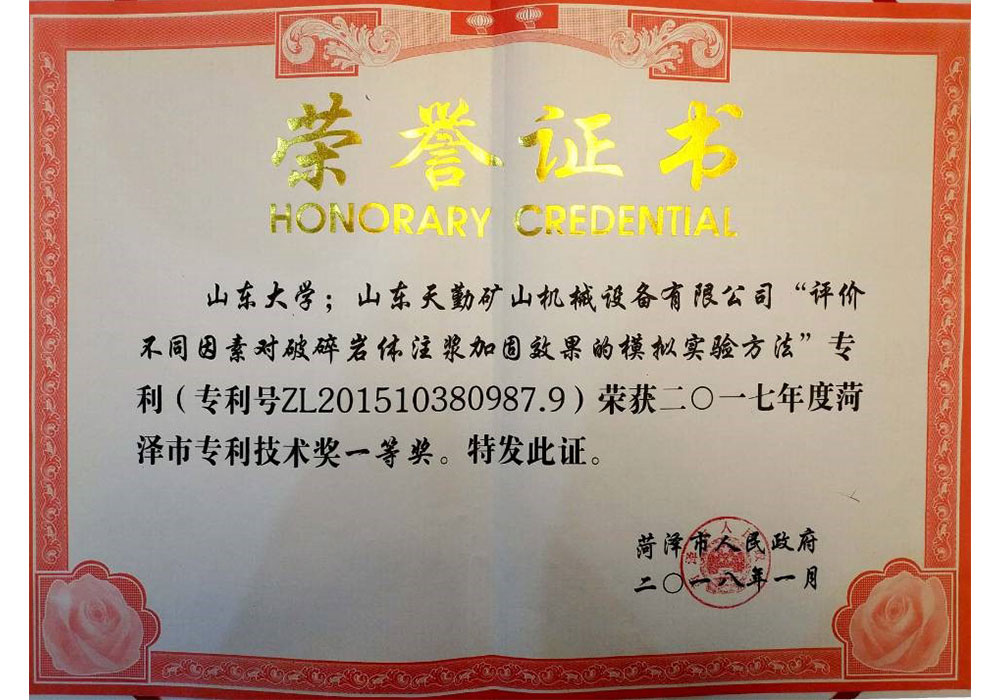 荣誉证书
HONORARY CREDENTIAL
山东大学；山东天勤矿山机械设备有限公司“评价
不同因素对破碎岩体注浆加固效果的模拟实验方法”专
利（专利号ZL201510380987.9）荣获二〇一七年度菏
泽市专利技术奖一等奖。特发此证。
菏泽市人民政府
二〇一八年一月